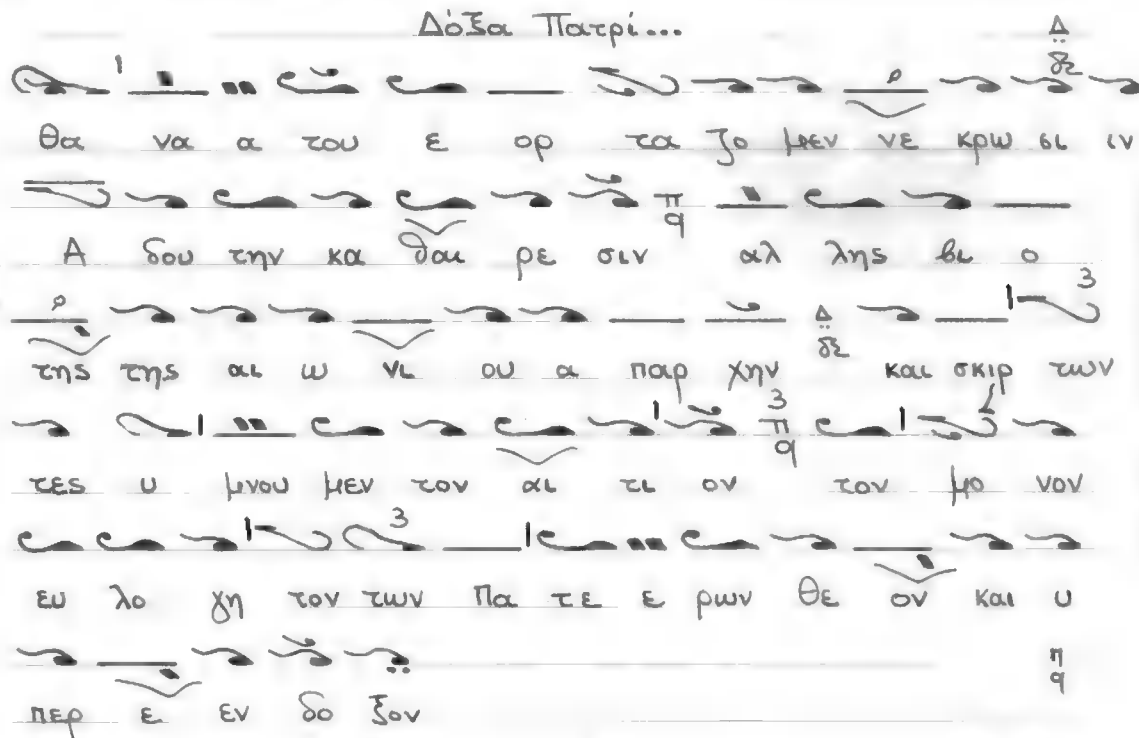 Δόξα Πατρί...
Δ
δι
Θα να α του ε ορ τα ζο μεν νε κρω σι ιν
Α δου την και θαι ρε σιν π q αλ λης βι ο
της της αι ω νι ου α παρ χην Δ δι και σκιρ 3 των
τες υ μνου μεν τον αι τι ον 3 π q τον μο νον
ευ λο γη τον 3 των Πα τε ε ρων Θε ον και υ
περ ε εν δο ξον π q